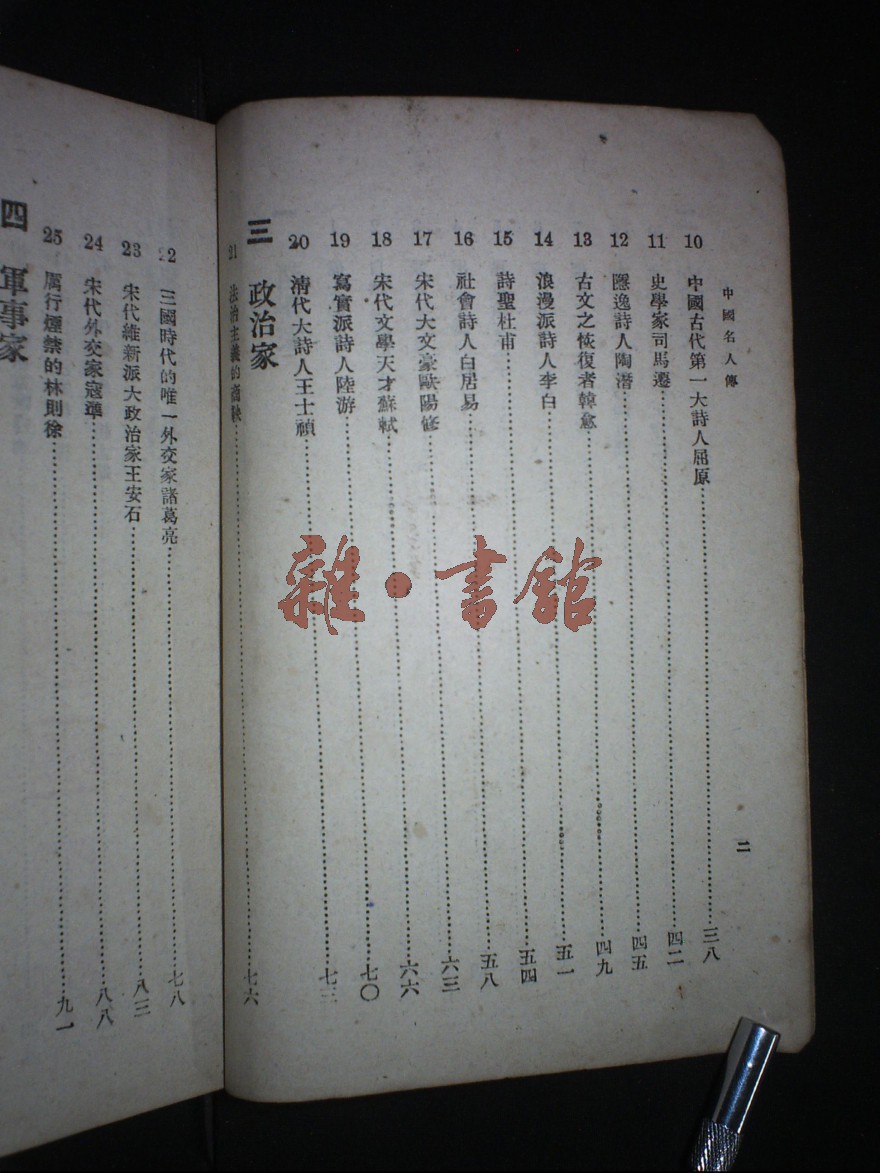 中國名人傳
10 中國古代第一大詩人屈原 三八
11 史學家司馬遷 四二
12 隱逸詩人陶潛 四五
13 古文之恢復者韓愈 四九
14 浪漫派詩人李白 五一
15 詩聖杜甫 五四
16 社會詩人白居易 五八
17 宋代大文豪歐陽修 六三
18 宋代文學天才蘇軾 六六
19 寫實派詩人陸游 七〇
20 清代大詩人王士禎 七三
三 政治家
21 法治主義的商鞅 七六
二
22 三國時代的唯一外交家諸葛亮 七八
23 宋代維新派大政治家王安石 八三
24 宋代外交家寇準 八八
25 厲行煙禁的林則徐 九一
四 軍事家
雜·書館